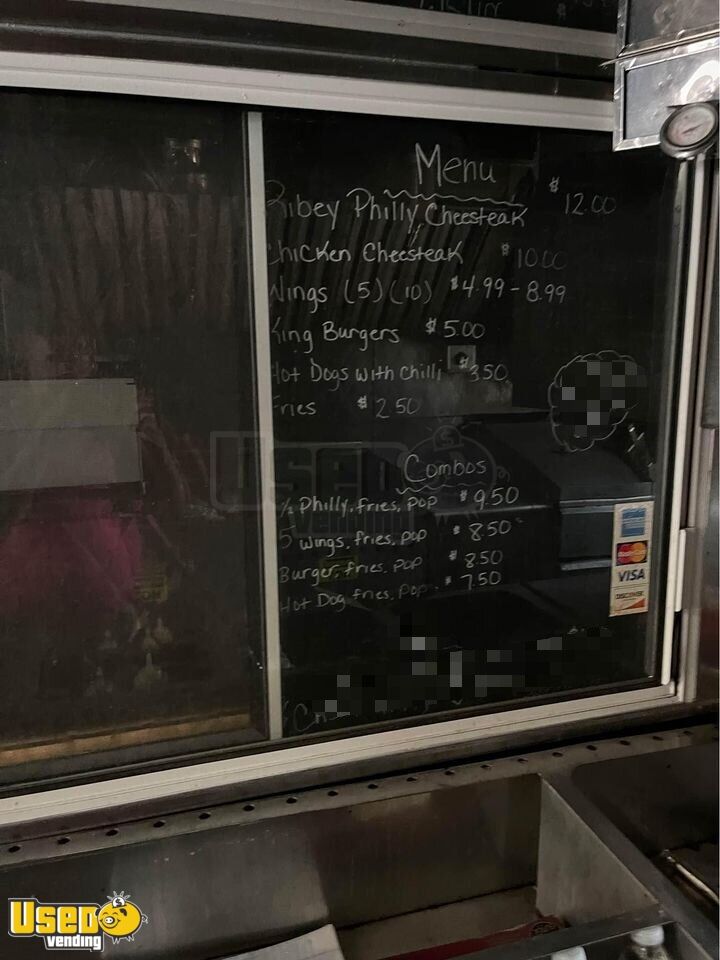 Menu
Ribey Philly Cheesteak $12.00
Chicken Cheesteak $10.00
Wings (5) (10) $4.99 - 8.99
King Burgers $5.00
Hot Dogs with Chilli $3.50
Fries $2.50
Combos
½ Philly, fries, pop $9.50
5 wings, fries, pop $8.50
Burger, fries, pop $8.50
Hot Dog fries, pop - $7.50
MasterCard
VISA
DISCOVER
USED
vending
USED
vending